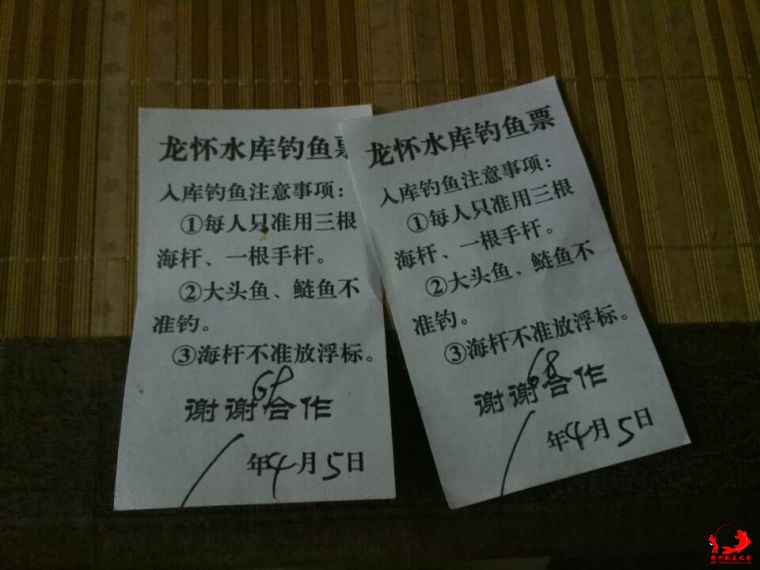 龙怀水库钓鱼票
入库钓鱼注意事项：
①每人只准用三根
海杆、一根手杆。
②大头鱼、鲢鱼不
准钓。
③海杆不准放浮标。
谢谢合作
年4月5日
龙怀水库钓鱼票
入库钓鱼注意事项：
①每人只准用三根
海杆、一根手杆。
②大头鱼、鲢鱼不
准钓。
③海杆不准放浮标。
68
谢谢合作
年4月5日